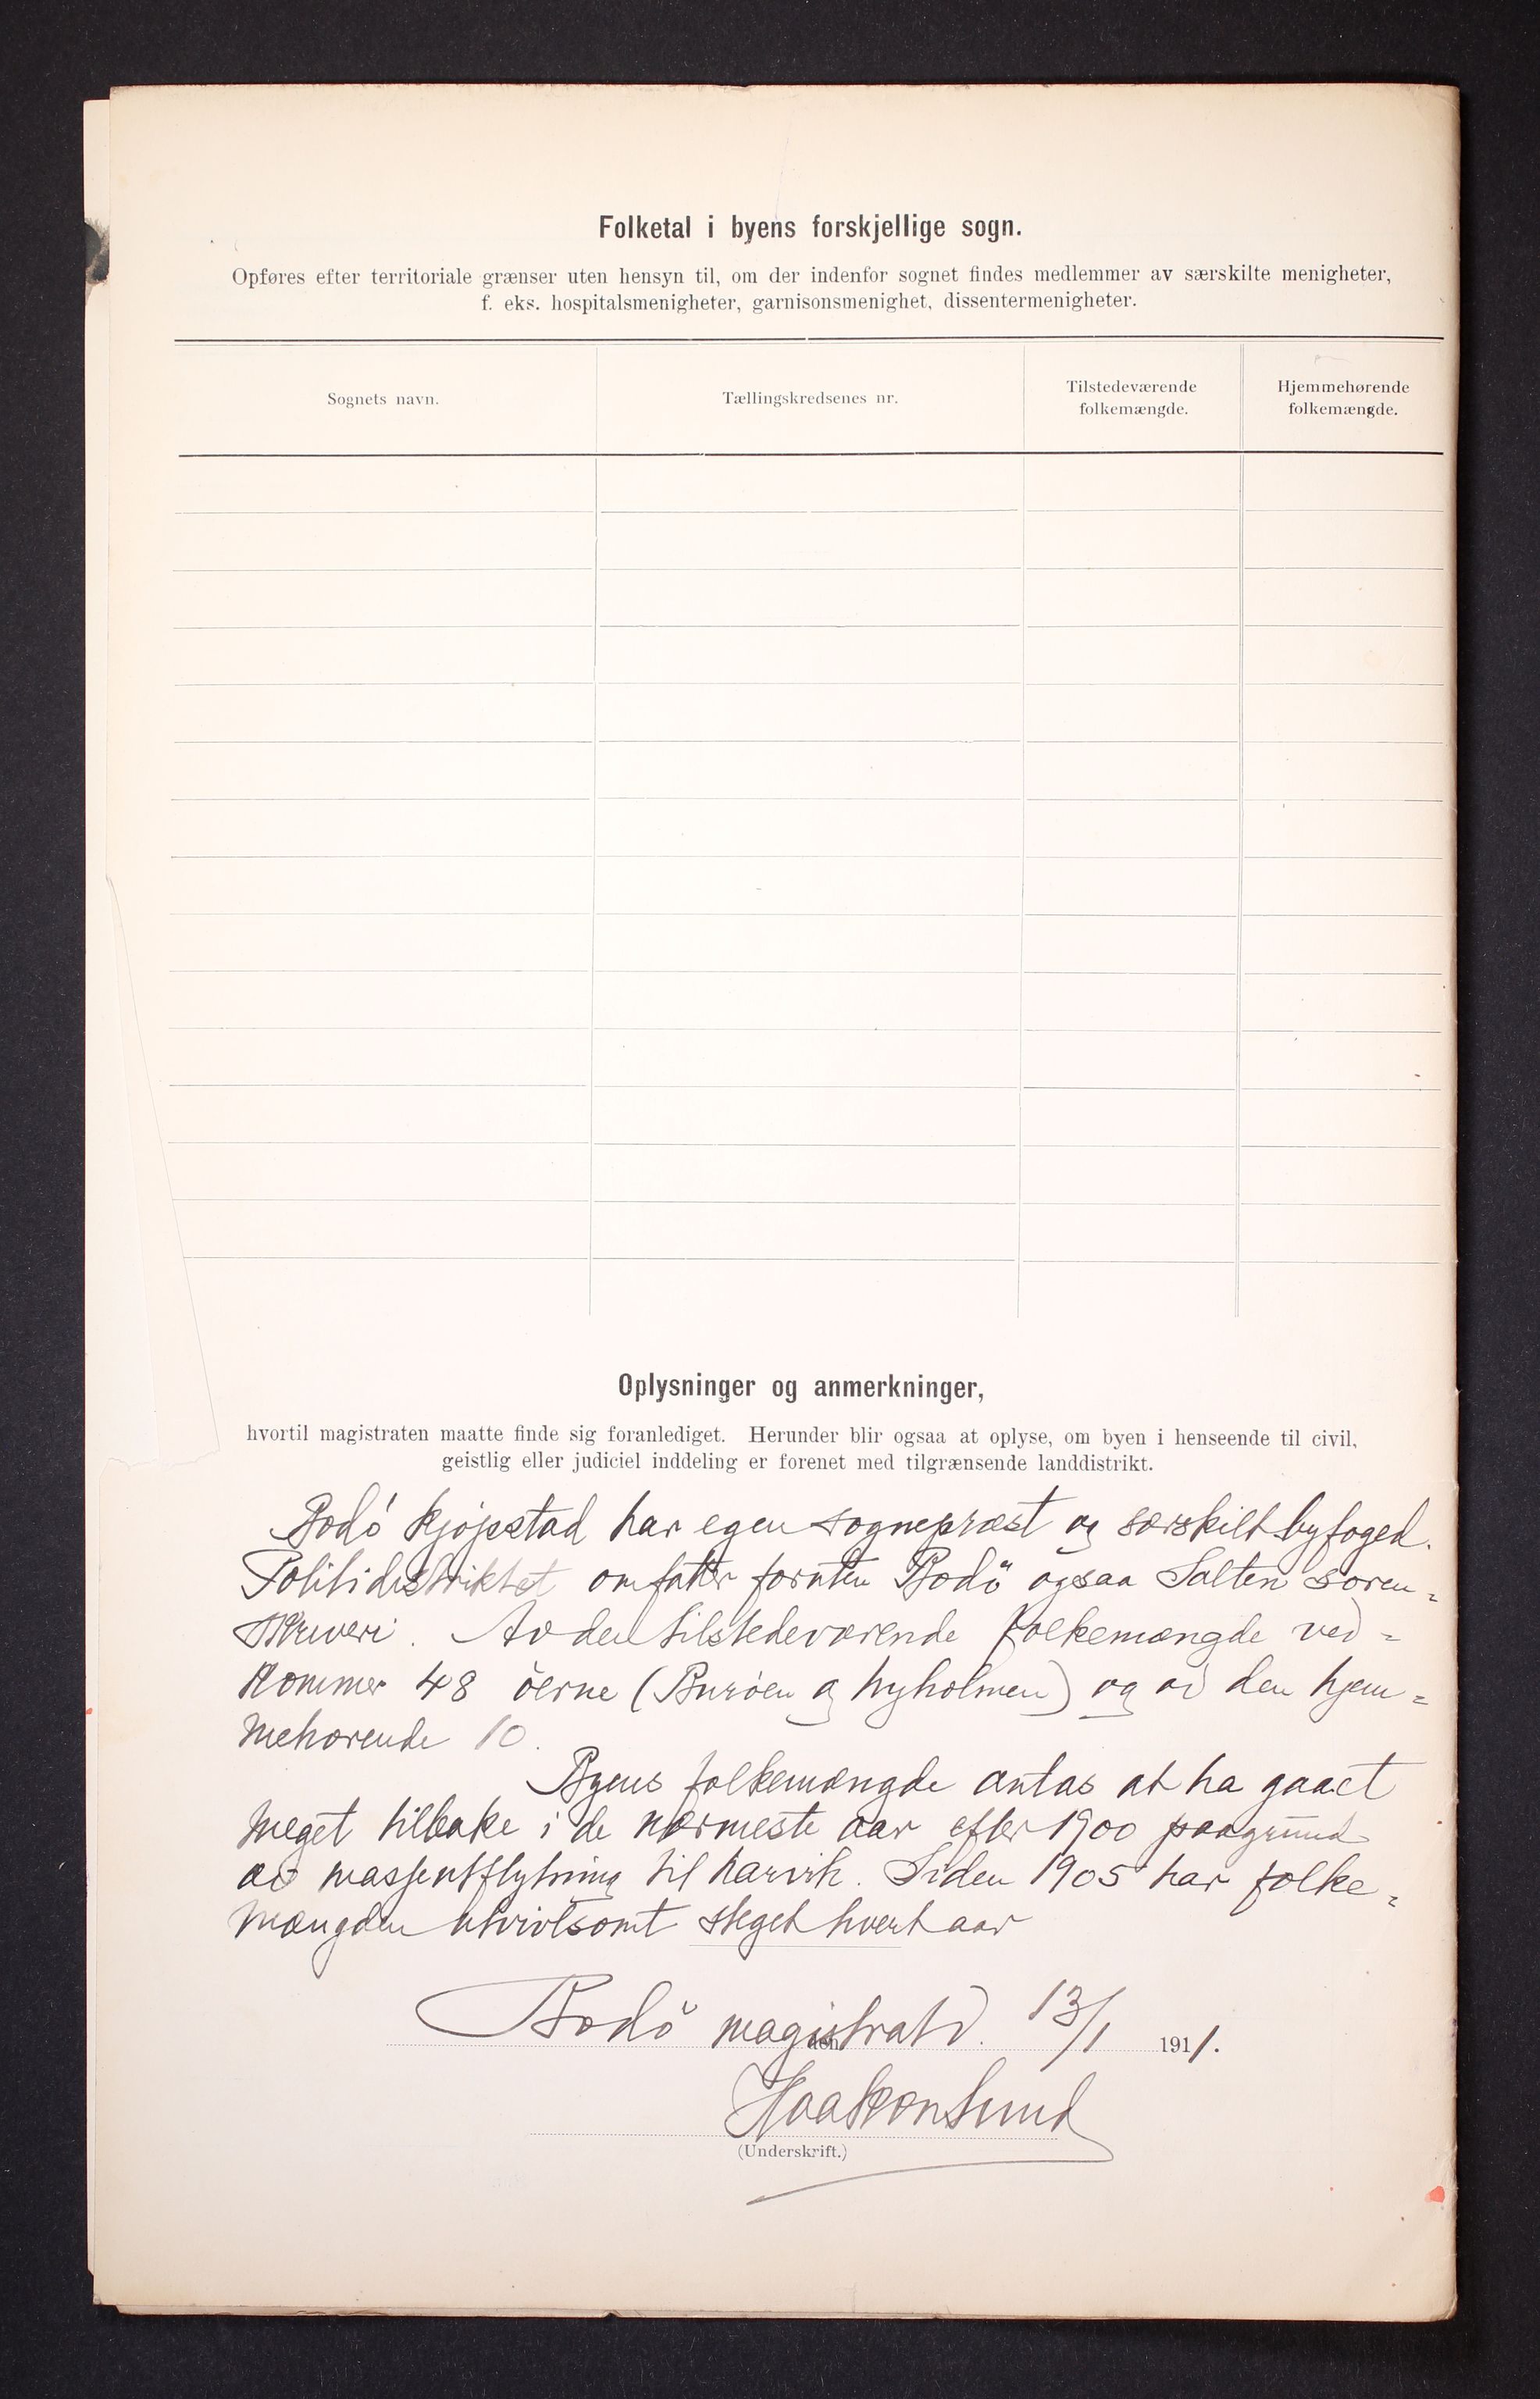 Folketal i byens forskjellige sogn.
Opføres efter territoriale grænser uten hensyn til, om der indenfor sognet findes medlemmer av særskilte menigheter,
f. eks. hospitalsmenigheter, garnisonsmenighet, dissentermenigheter.
Sognets navn.
Tællingskredsenes nr.
Tilstedeværende
folkemængde.
Hjemmehørende
folkemængde.
Oplysninger og anmerkninger,
hvortil magistraten maatte finde sig foranlediget. Herunder blir ogsaa at oplyse, om byen i henseende til civil,
geistlig eller judiciel inddeling er forenet med tilgrænsende landdistrikt.
Bodø kjøpstad har egen sognepræst og særskilt byfoged.
Politidistriktet omfatter foruten Bodø ogsaa Salten soren-
skriveri. Av den tilstedeværende folkemængde ved-
kommer 48 øerne (Burøen og Nyholmen) og av den hjem-
mehørende 10.
Byens folkemængde antas at ha gaaet
meget tilbake i de nærmeste aar efter 1900 paagrund
av masseutflytning til Narvik. Siden 1905 har folke-
mængden utvivlsomt steget hvert aar
Bodø magistrat d. 13/1 1911.
den
Haakon Lund
(Underskrift.)